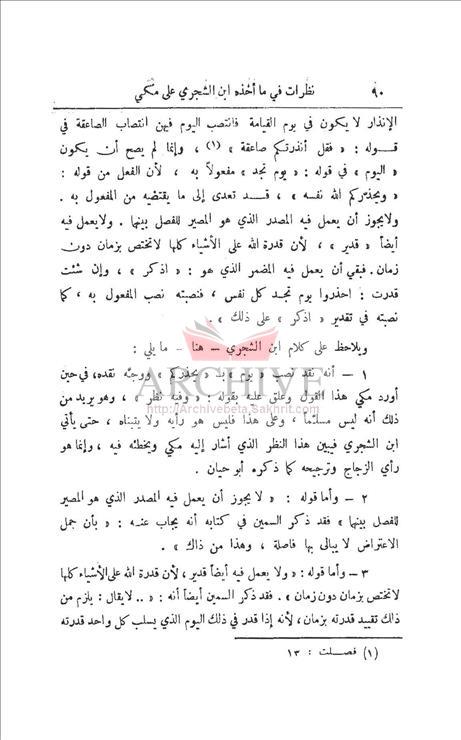 ٩٠ نظرات في ما أخذه ابن الشجري على مكي
الإنذار لا يكون في يوم القيامة فانتصب اليوم فيهن انتصاب الصاعقة في
قوله : « فقل أنذرتكم صاعقة » (١) ، وإنما لم يصح أن يكون
« اليوم » في قوله : « يوم تجد » مفعولاً به ، لأن الفعل من قوله :
« ويحذركم الله نفسه » ، قد تعدى إلى ما يقتضيه من المفعول به .
ولايجوز أن يعمل فيه المصدر الذي هو المصير للفصل بينها . ولايعمل فيه
أيضاً « قدير » ، لأن قدرة الله على الأشياء كلها لاتختص بزمان دون
زمان . فبقي أن يعمل فيه المضمر الذي هو : « اذكر » ، وإن شئت
قدرت : احذروا يوم تجد كل نفس ، فنصبته نصب المفعول به ، كما
نصبته في تقدير « اذكر » على ذلك » .
ويلاحظ على كلام ابن الشجري – هنا – ما يلي :
١ – أنه نقد نصب « يوم » بـ « يحذركم » ووجّه نقده، في حين
أورد مكي هذا القول وعلق عليه بقوله : « وفيه نظر » ، وهو يريد من
ذلك أنه ليس مسلّماً ، وعلى هذا فليس هو رأيه ولا يتبناه ، حتى يأتي
ابن الشجري فيبين هذا النظر الذي أشار إليه مكي ويخطئه فيه ، وإنما هو
رأي الزجاج وترجيحه كما ذكره أبو حيان .
٢ – وأما قوله : « لا يجوز أن يعمل فيه المصدر الذي هو المصير
للفصل بينها » فقد ذكر السمين في كتابه أنه يجاب عنه : « بأن جمل
الاعتراض لا يبالى بها فاصلة ، وهذا من ذاك » .
٣ – وأما قوله : « ولا يعمل فيه أيضاً قدير ، لأن قدرة الله على الأشياء كلها
لاتختص بزمان دون زمان » . فقد ذكر السمين أيضاً أنه : « .. لايقال : يلزم من
ذلك تقييد قدرته بزمان ، لأنه إذا قدر في ذلك اليوم الذي يسلب كل واحد قدرته
(١) فصلت : ١٣
ARCHIVE
http://Archivebeta.Sakhrit.com